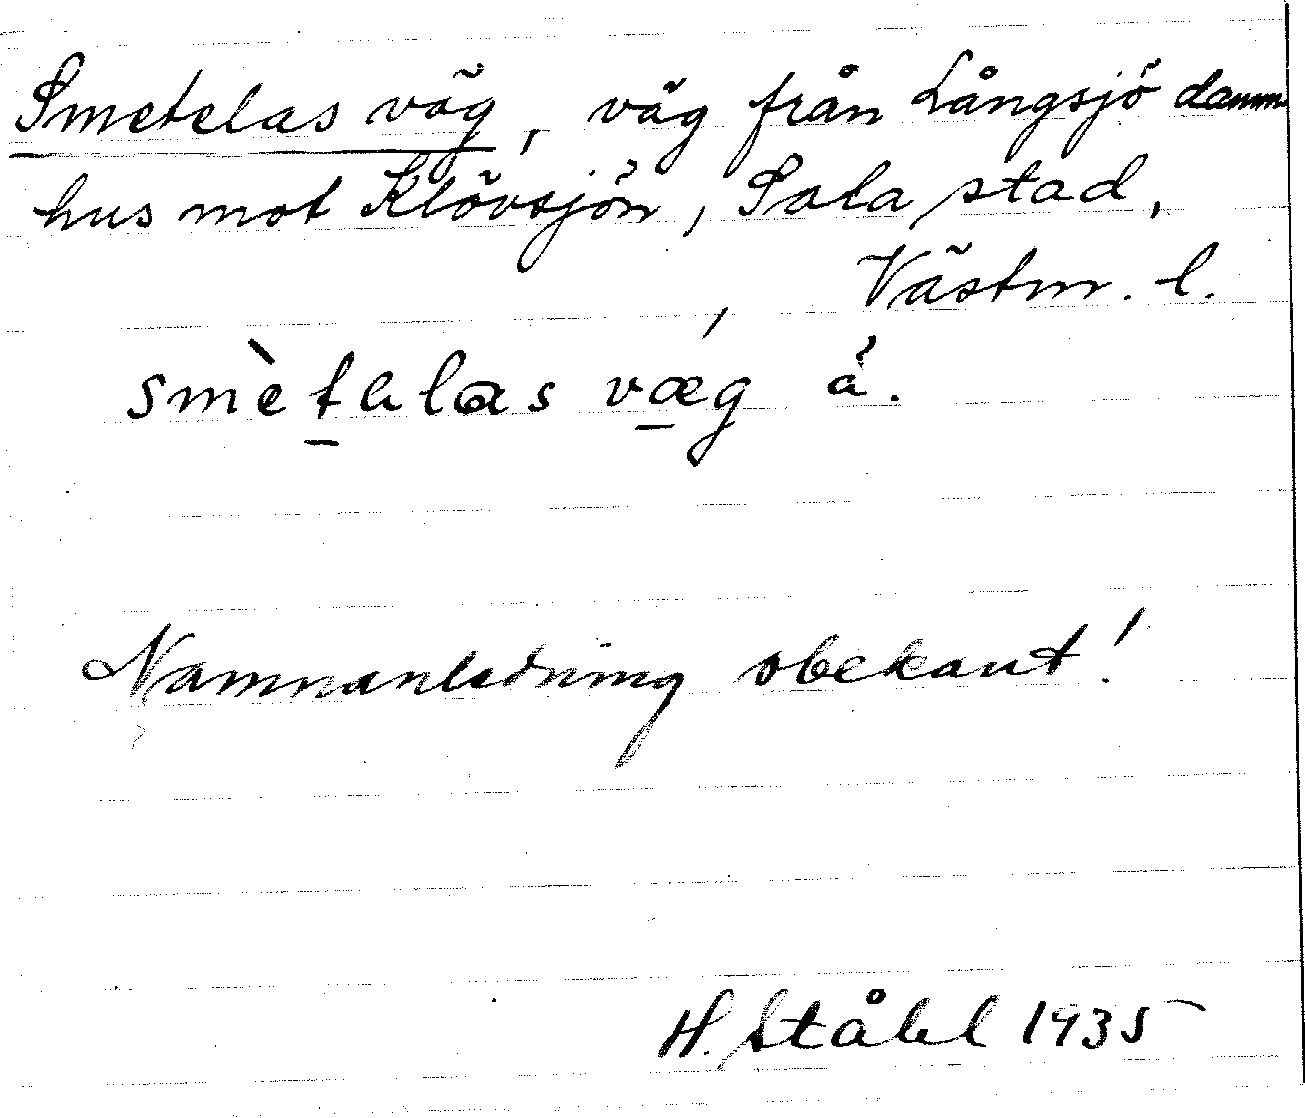 Smetelas väg, väg från Långsjö damm
hus mot Klövsjön, Sala stad,
Västm. l.
smètalas vǽ̱g å.
Namnanledning obekant!
H. Ståhl 1935